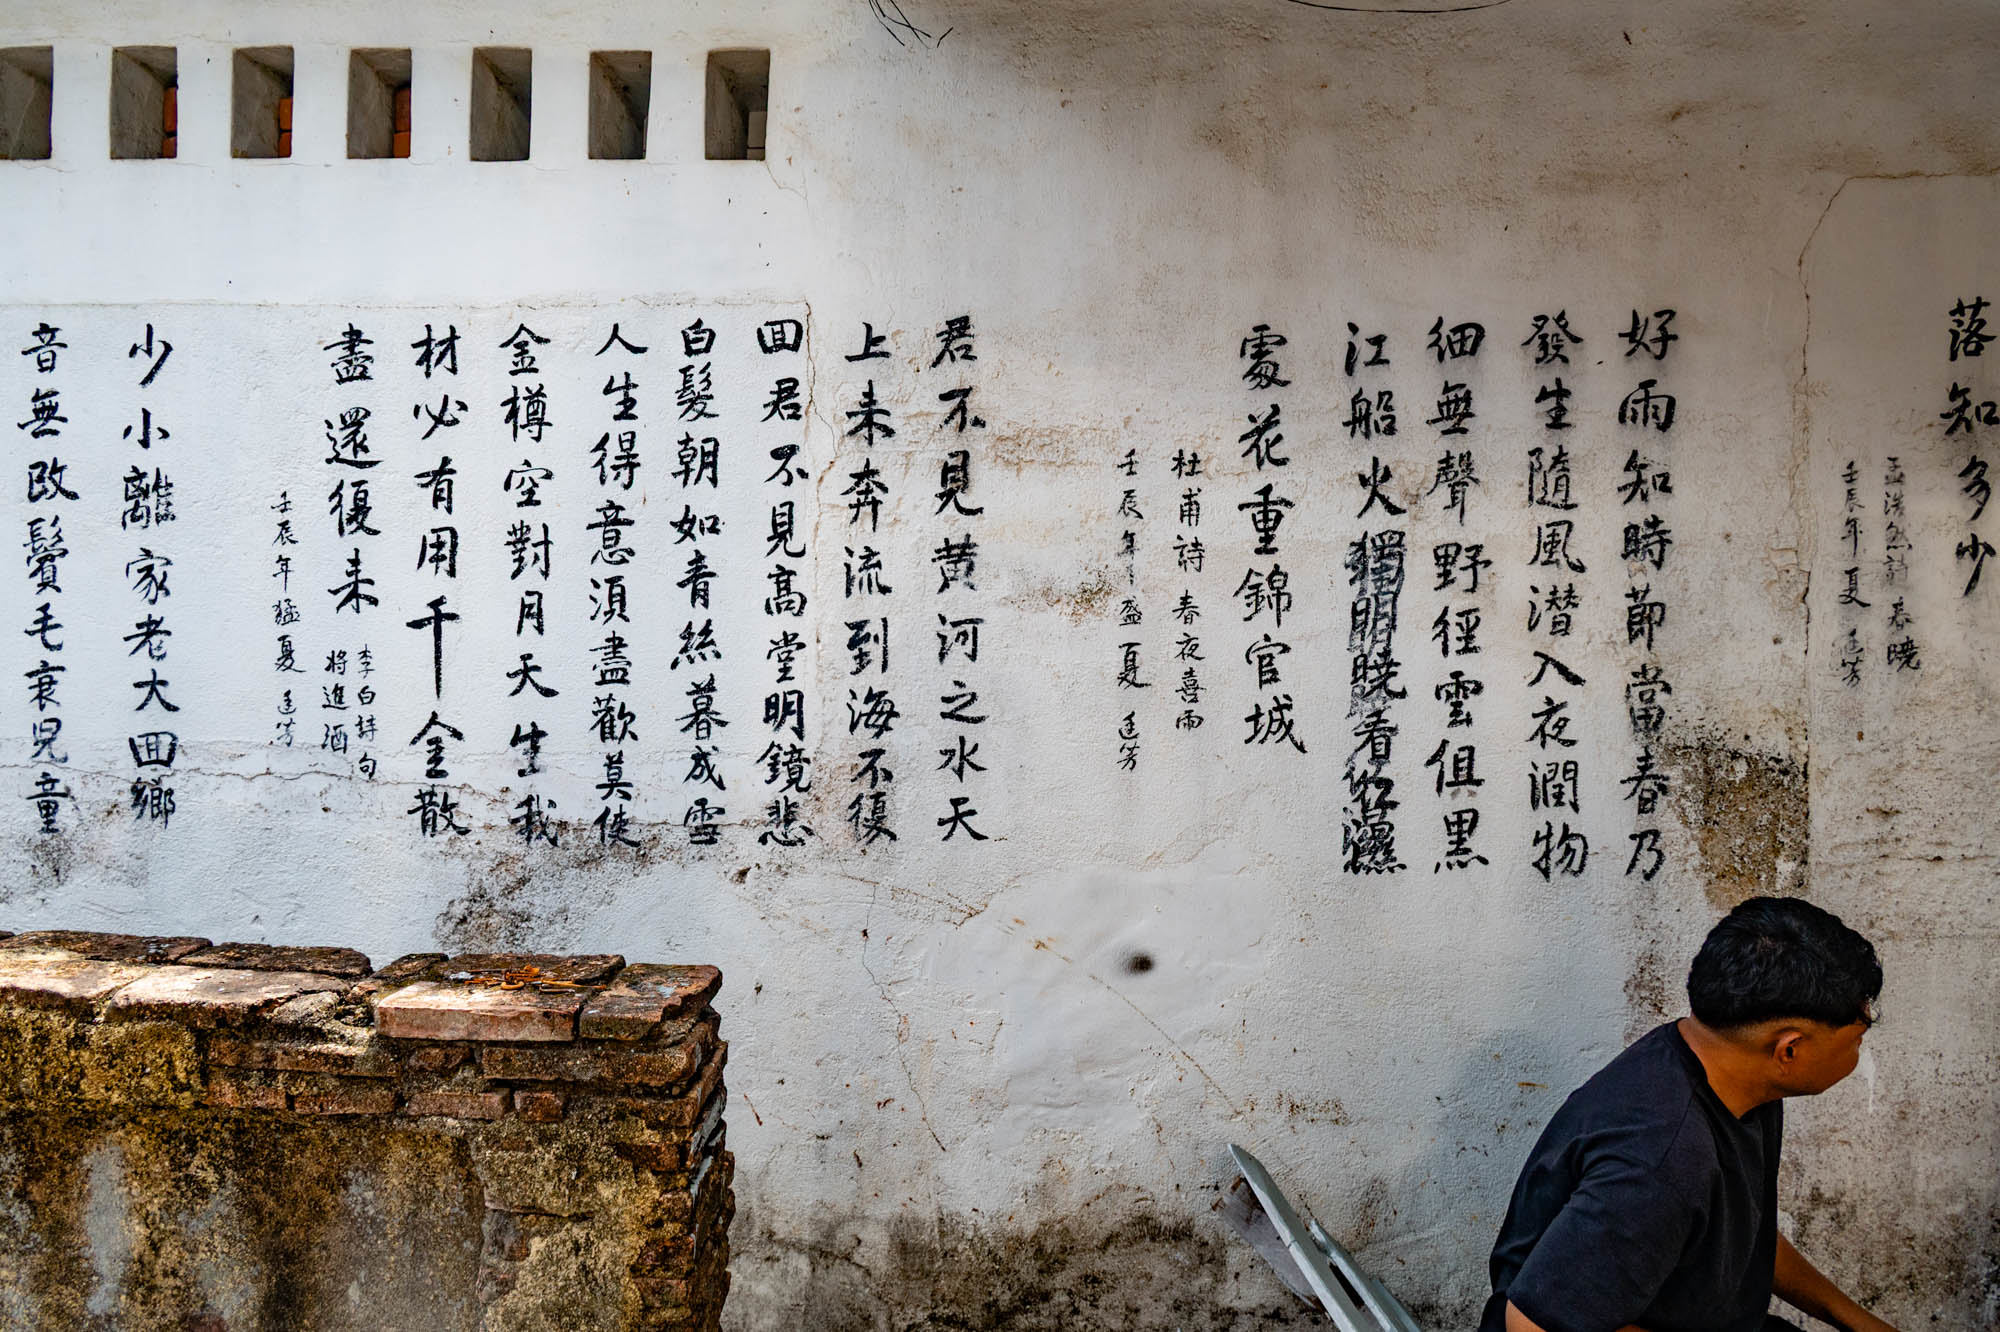 落知多少
孟浩然詩 春曉
壬辰年夏 廷芳
好雨知時節當春乃
發生隨風潛入夜潤物
細無聲野徑雲俱黑
江船火獨明曉看紅濕
處花重錦官城
杜甫詩 春夜喜雨
壬辰年盛夏 廷芳
君不見黃河之水天
上來奔流到海不復
回君不見高堂明鏡悲
白髮朝如青絲暮成雪
人生得意須盡歡莫使
金樽空對月天生我
材必有用千金散
盡還復來
李白詩句
將進酒
壬辰年猛夏 廷芳
少小離家老大回鄉
音無改鬢毛衰兒童